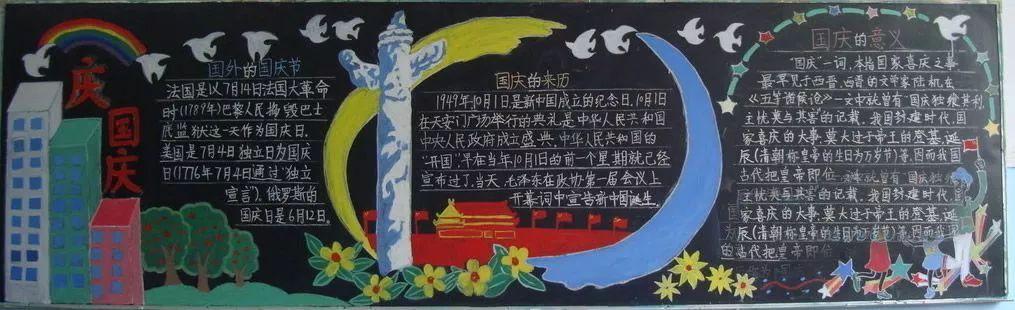 庆国庆
国外的国庆节
法国是以7月14日法国大革命
时(1789年)巴黎人民捣毁巴士
底监狱这一天作为国庆日.
美国是7月4日独立日为国庆
日(1776年7月4日通过"独立
宣言").俄罗斯的
国庆日是6月12日.
国庆的来历
1949年10月1日是新中国成立的纪念日.10月1日
在天安门广场举行的典礼是中华人民共和国
中央人民政府成立盛典.中华人民共和国的
"开国"早在当年10月1日的前一个星期就已经
宣布过了.当天,毛泽东在政协第一届会议上
开幕词中宣告新中国诞生.
国庆的意义
"国庆"一词,本指国家喜庆之事
最早见于西晋.西晋的文学家陆机在
《五等诸侯论》一文中就曾有"国庆独飨其利
主忧莫与其害"的记载.我国封建时代,国
家喜庆的大事,莫大过于帝王的登基,诞
辰(清朝称皇帝的生日为万岁节)等.因而我国
古代把皇帝即位
主忧莫与其害"的记载.我国封建时代,国
家喜庆的大事,莫大过于帝王的登基,诞
辰(清朝称皇帝的生日为万岁节)等.因而我国
古代把皇帝即位